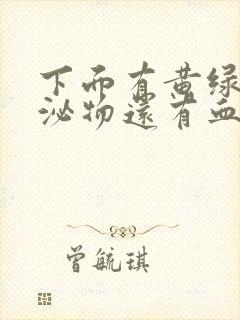 下面有黄绿
泌物还有血
曾毓琪